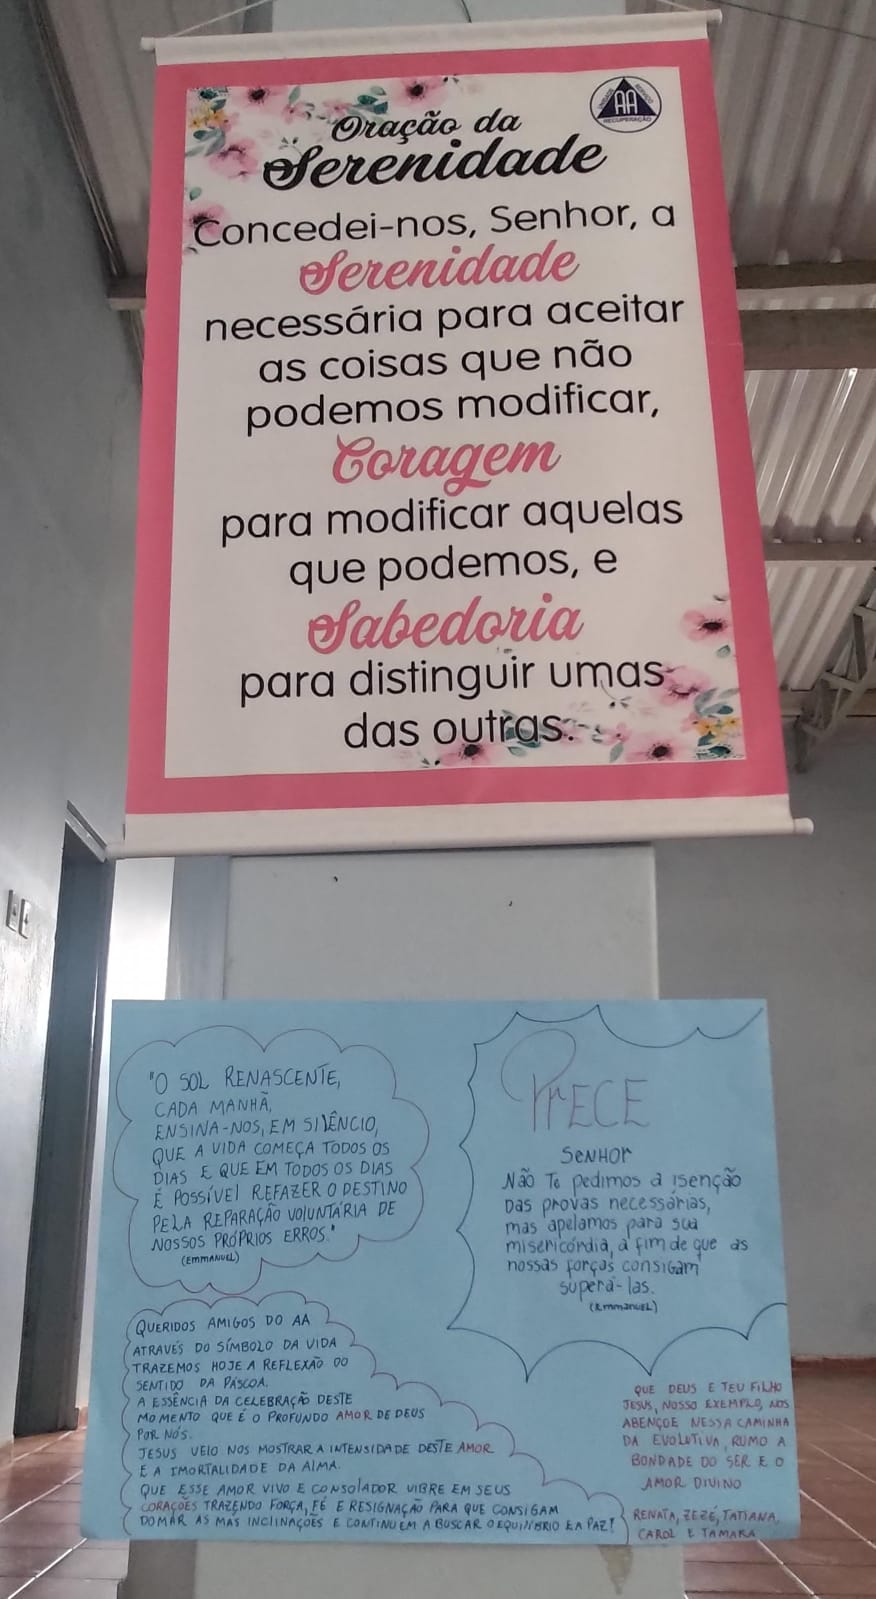 Oração da
Serenidade
UNIDADE
SERVIÇO
AA
RECUPERAÇÃO
Concedei-nos, Senhor, a
Serenidade
necessária para aceitar
as coisas que não
podemos modificar,
Coragem
para modificar aquelas
que podemos, e
Sabedoria
para distinguir umas
das outras.
"O SOL RENASCENTE,
CADA MANHÃ,
ENSINA-NOS, EM SILÊNCIO,
QUE A VIDA COMEÇA TODOS OS
DIAS E QUE EM TODOS OS DIAS
É POSSÍVEL REFAZER O DESTINO
PELA REPARAÇÃO VOLUNTÁRIA DE
NOSSOS PRÓPRIOS ERROS."
(EMMANUEL)
PrECE
SENHOr
Não Te pedimos a isenção
Das provas necessárias,
mas apelamos para sua
misericórdia, a fim de que as
nossas forças consigam
superá-las.
(Emmanuel)
QUERIDOS AMIGOS DO AA
ATRAVÉS DO SÍMBOLO DA VIDA
TRAZEMOS HOJE A REFLEXÃO DO
SENTIDO DA PÁSCOA.
A ESSÊNCIA DA CELEBRAÇÃO DESTE
MOMENTO QUE É O PROFUNDO AMOR DE DEUS
POR NÓS.
JESUS VEIO NOS MOSTRAR A INTENSIDADE DESTE AMOR
E A IMORTALIDADE DA ALMA.
QUE ESSE AMOR VIVO E CONSOLADOR VIBRE EM SEUS
CORAÇÕES TRAZENDO FORÇA, FÉ E RESIGNAÇÃO PARA QUE CONSIGAM
DOMAR AS MÁS INCLINAÇÕES E CONTINUEM A BUSCAR O EQUILÍBRIO E A PAZ!
QUE DEUS E TEU FILHO
JESUS, NOSSO EXEMPLO, NOS
ABENÇOE NESSA CAMINHA
DA EVOLUTIVA, RUMO A
BONDADE DO SER E O
AMOR DIVINO
RENATA, ZEZÉ, TATIANA,
CAROL E TAMARA